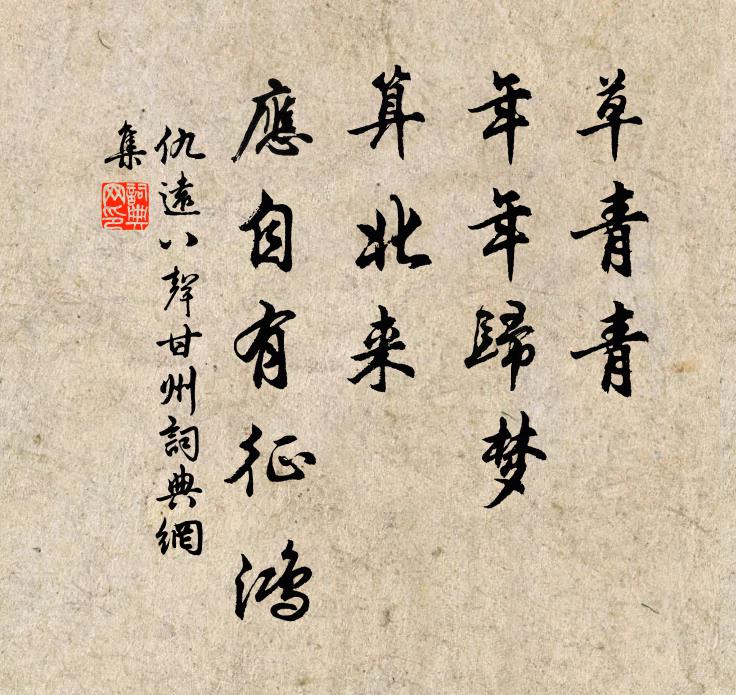 草青青
年年歸梦
算北来
應自有征鴻
仇遠八聲甘州詞典網
集
詞典
网印